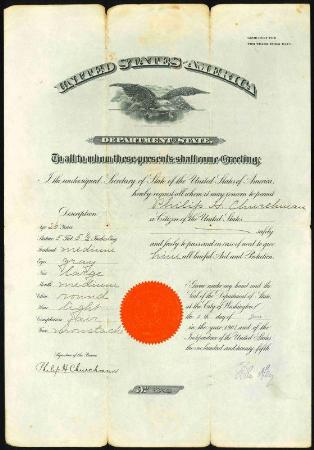 GOOD ONLY FOR
TWO YEARS FROM DATE
UNITED STATES OF AMERICA
DEPARTMENT OF STATE.
To all to whom these presents shall come Greeting:
I the undersigned Secretary of State of the United States of America,
hereby request all whom it may concern to permit
Philip H. Churchman
a Citizen of the United States
safely
and freely to pass and in case of need to give
him all lawful Aid and Protection.
Description
Age Years
Stature 5 Feet Inches Eng
Forehead medium
Eyes gray
Nose large
Mouth medium
Chin round
Hair light
Complexion fair
Face moustache
Signature of the Bearer
Philip H Churchman
Given under my hand and the
Seal of the Department of State,
at the City of Washington
the day of
in the year 1901 and of the
Independence of the United States
the one hundred and twenty fifth
John Hay
No.